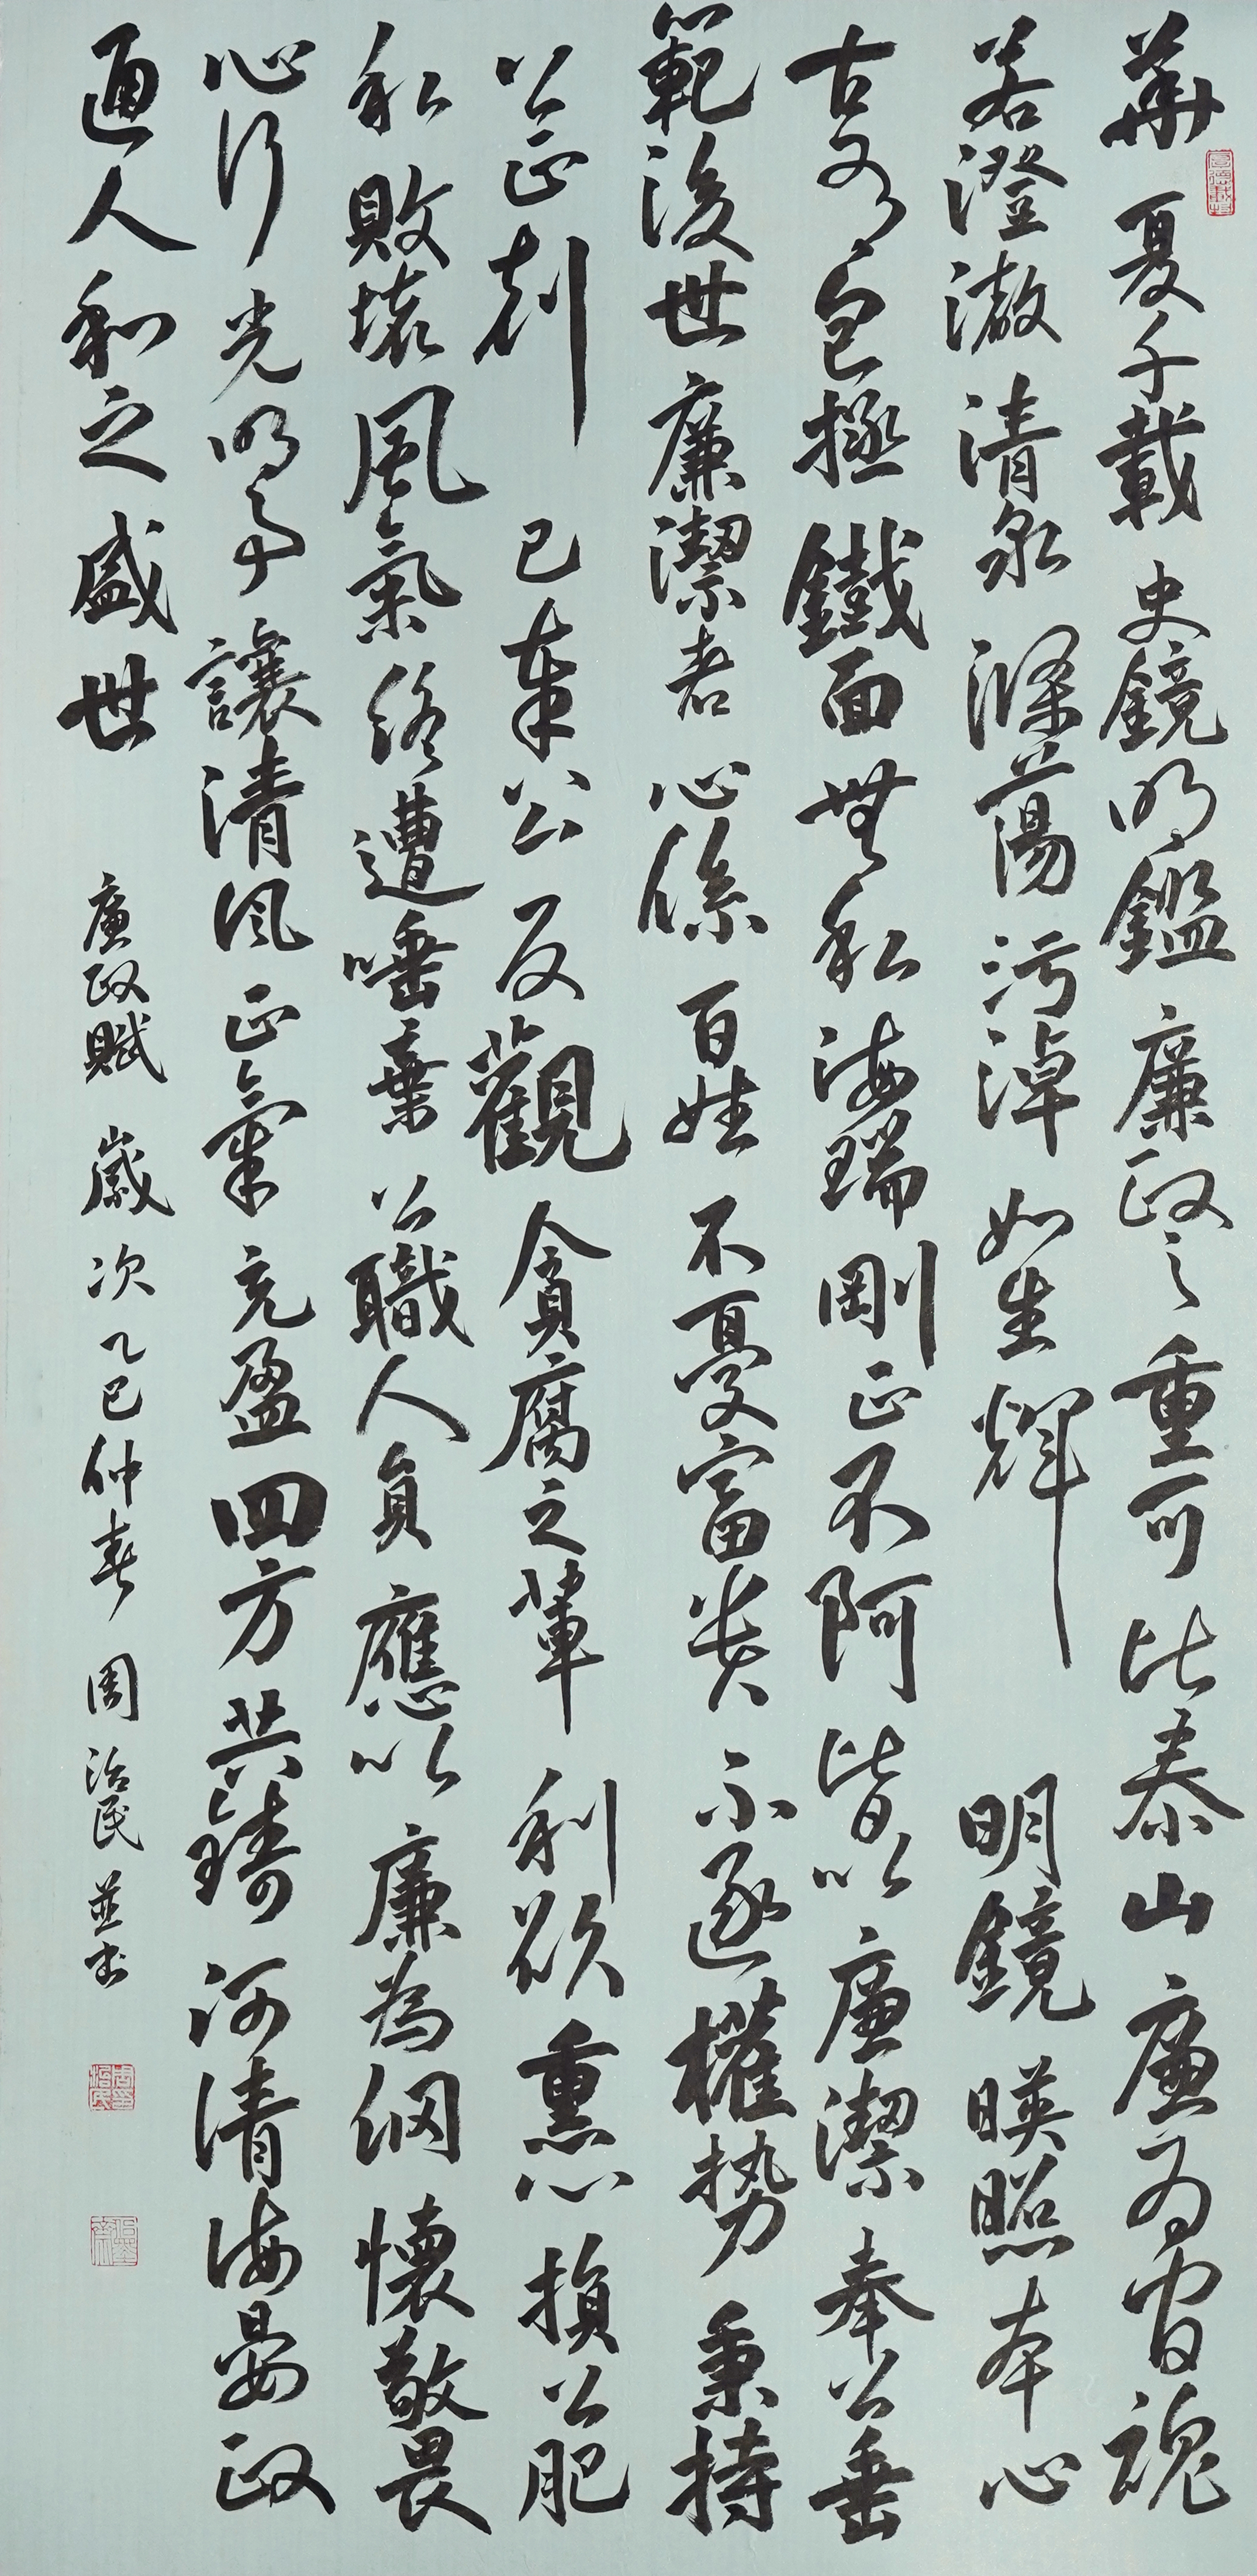 華夏千載史鏡明鑑廉政之重可比泰山廉為官魂
若澄澈清泉滌蕩污淖如生輝明鏡暎照本心
古有包拯鐵面無私海瑞剛正不阿皆以廉潔奉公垂
範後世廉潔者心係百姓不憂富貴不逐權勢秉持
公正剋己奉公反觀貪腐之輩利欲熏心損公肥
私敗壞風氣終遭唾棄公職人員應以廉為綱懷敬畏
心行光明事讓清風正氣充盈四方共鑄河清海晏政
通人和之盛世
廉政賦 歲次乙巳仲春 周治民並書
厚德載物
周治民印